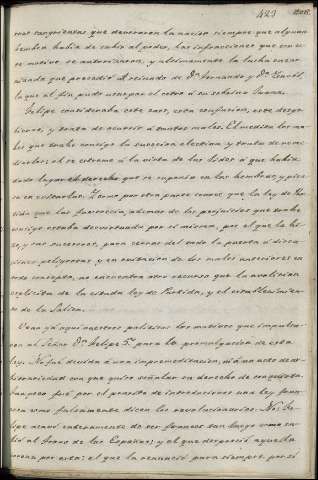 423
ras sangrientas que devoraron la nacion siempre que alguna
hembra habia de subir al poder, las infracciones que con es-
te motivo se autorizaron, y ultimamente la lucha encar-
nizada que precedió al reinado de Dn. Fernando y Da. Ysabel,
la que al fin pudo usurpar el cetro á su sobrina Juana.
Felipe consideraba este caos, esta confusion, este desgo-
bierno, y trata de acudir á tantos males. El medita los ma-
les que trahe consigo la sucesion electiva y trata de reme-
diarlos; el se estreme á la vista de las lides á que habia
dado lugar el derecho que se suponia en las hembras, y pien-
sa en evitarlas. Como por otra parte conoce que la ley de Par-
tida que las favorecia, ademas de los perjuicios que trahe
consigo estaba desvirtuada por si misma, por el que la hi-
zo, y sus sucesores, para cerrar del todo la puerta á discu-
siones peligrosas y en evitacion de los males anexos en
todo concepto, no encuentra otro recurso que la abolicion
esplicita de la citada ley de Partida, y el establecimien-
to de la Salica.
Vean ya aqui nuestros paisanos los motivos que impulsa-
ron al Señor Dn. Felipe 5º para la promulgacion de esta
ley. No fué devida á una impremeditacion, ni á un acto de ar-
bitrariedad con que quiso señalar su derecho de conquista,
tampoco fué por el prurito de introducirnos una ley fran-
cesa como falsamente dicen los revolucionarios. No: Fe-
lipe dejó enteramente de ser frances tan luego como su-
bió al trono de las Españas; y el que despreció aquella
corona por esta; el que la renunció para siempre por si